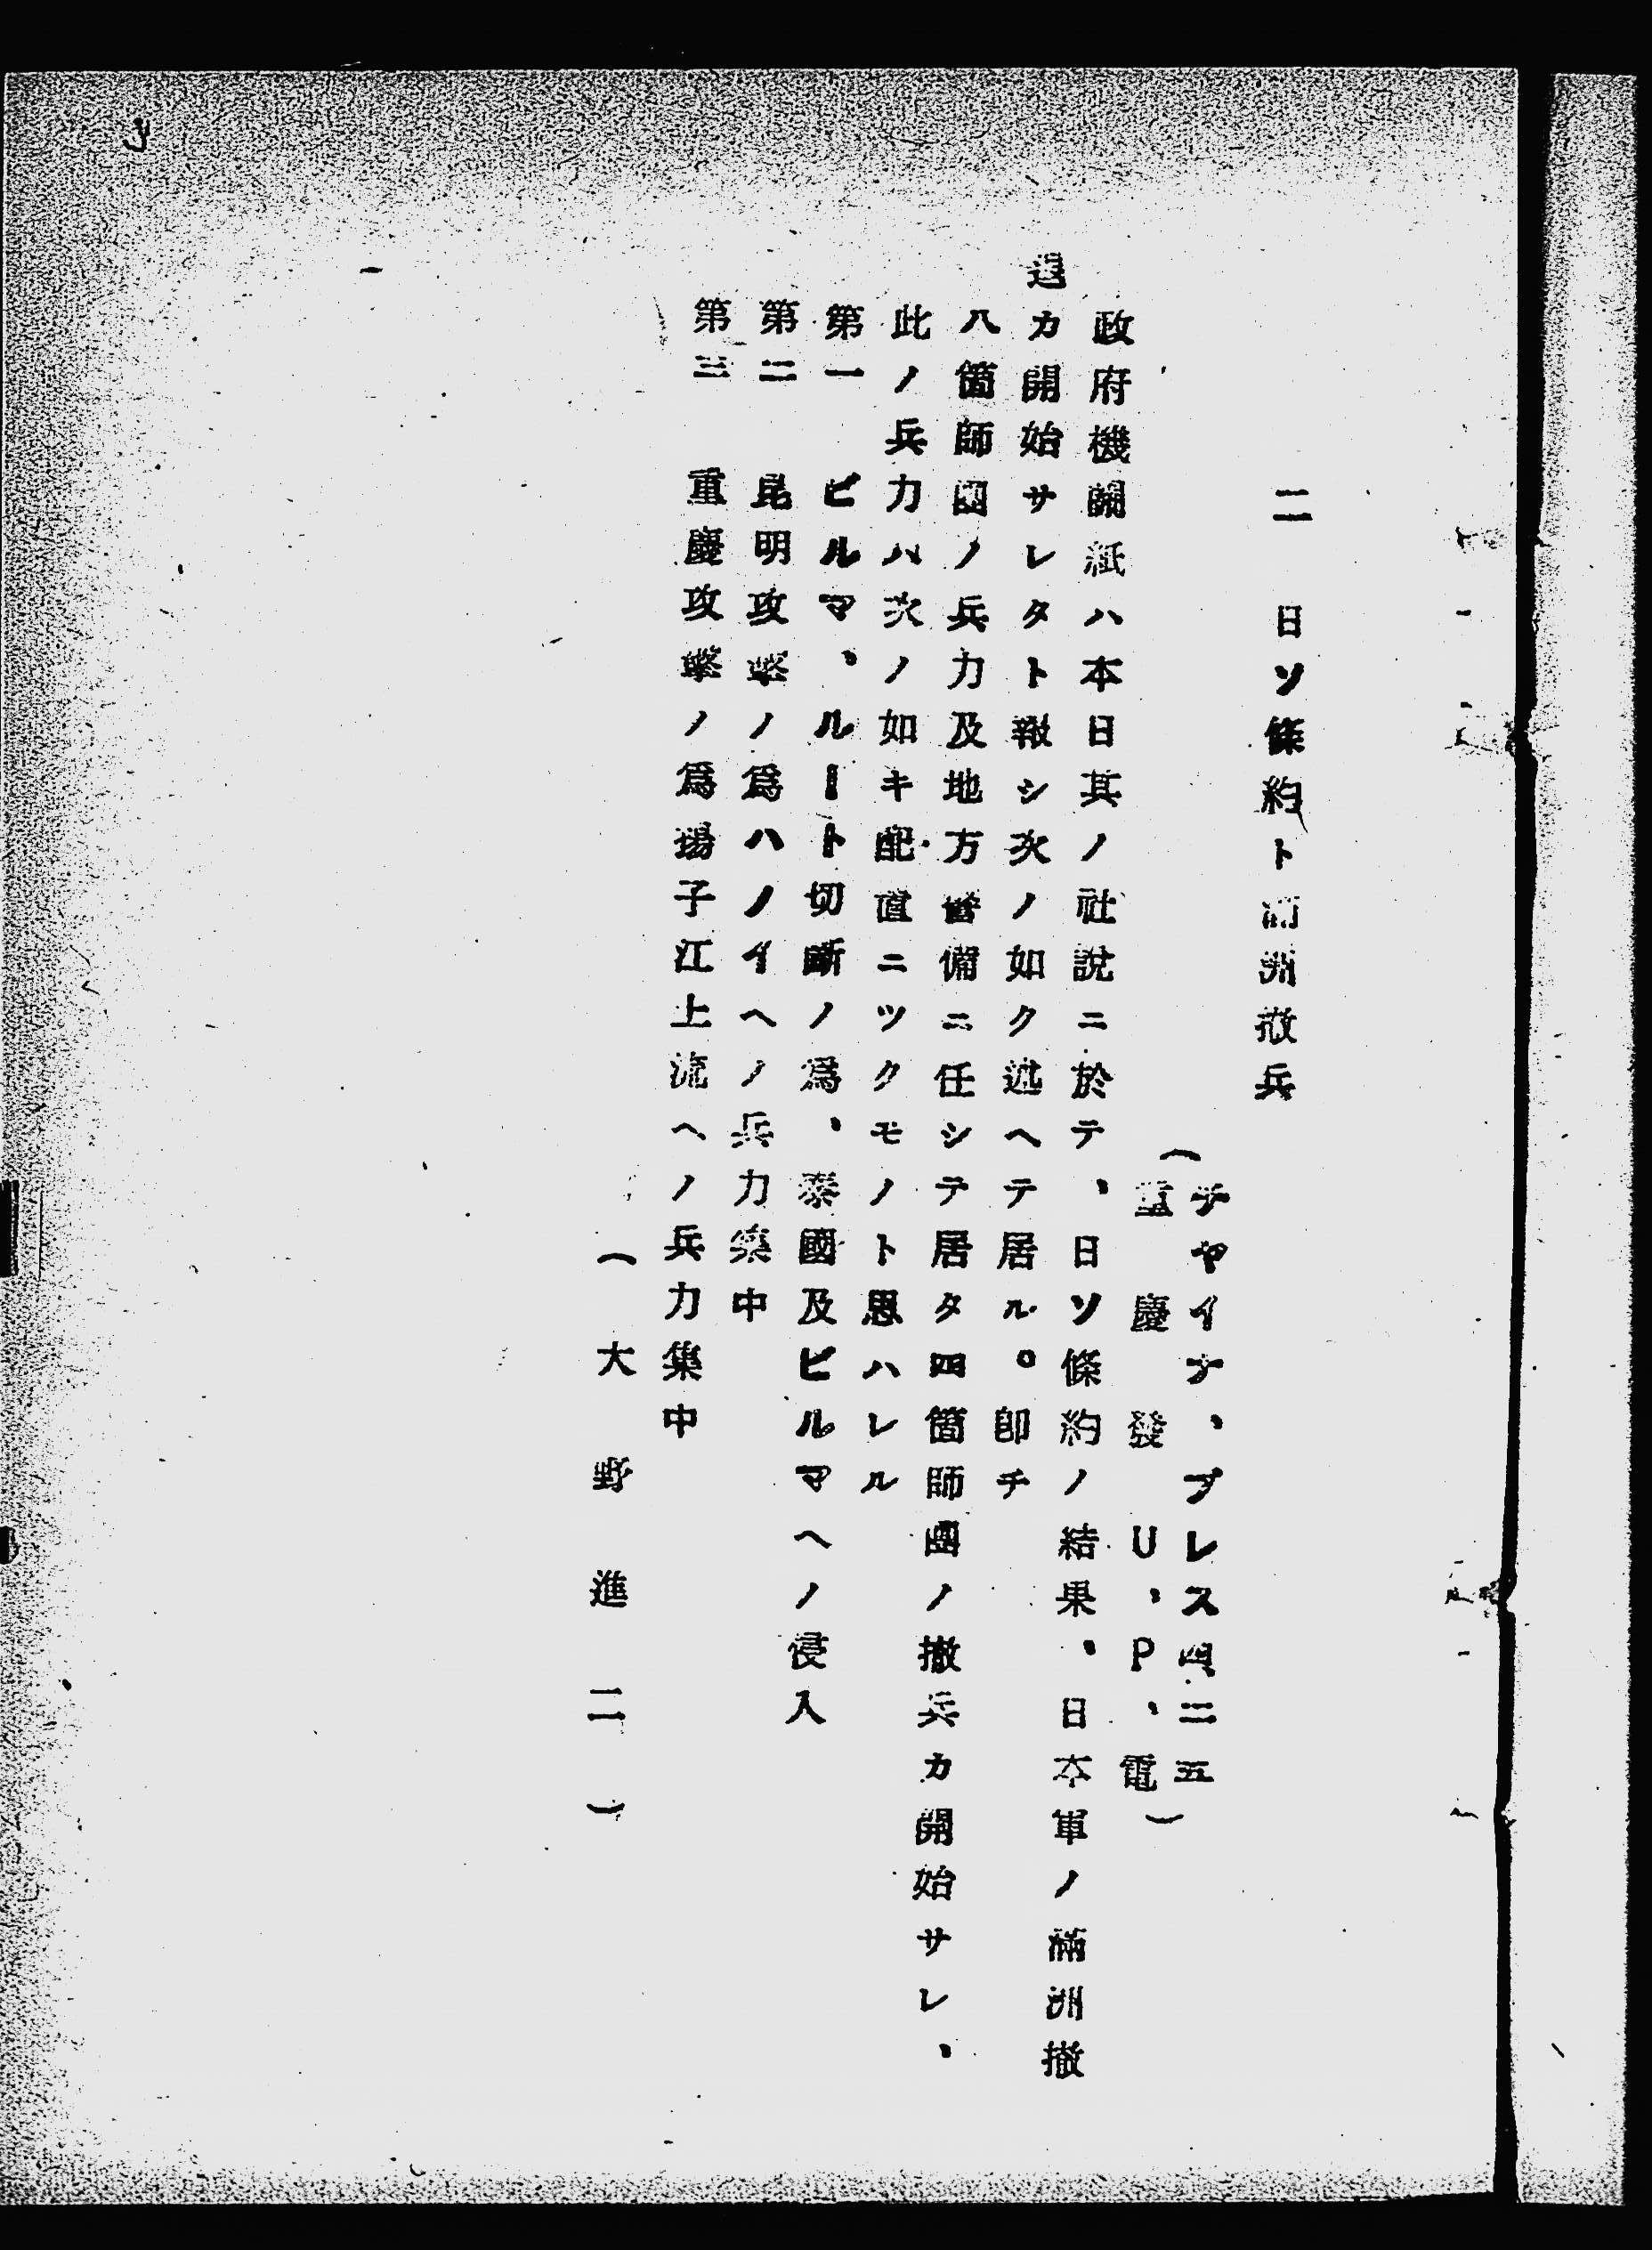 二 日ソ條約ト滿洲撤兵
(チヤイナ、プレス四二五
重慶發U、P、電)
政府機關紙ハ本日其ノ社說ニ於テ、日ソ條約ノ結果、日本軍ノ滿洲撤
退カ開始サレタト報シ次ノ如ク述ヘテ居ル。卽チ
八箇師團ノ兵力及地方警備ニ任シテ居タ四箇師團ノ撤兵カ開始サレ、
此ノ兵力ハ次ノ如キ配置ニツクモノト思ハレル
第一 ビルマ、ルート切斷ノ爲、泰國及ビルマヘノ侵入
第二 昆明攻擊ノ爲ハノイヘノ兵力集中
第三 重慶攻擊ノ爲揚子江上流ヘノ兵力集中
(大野進二)